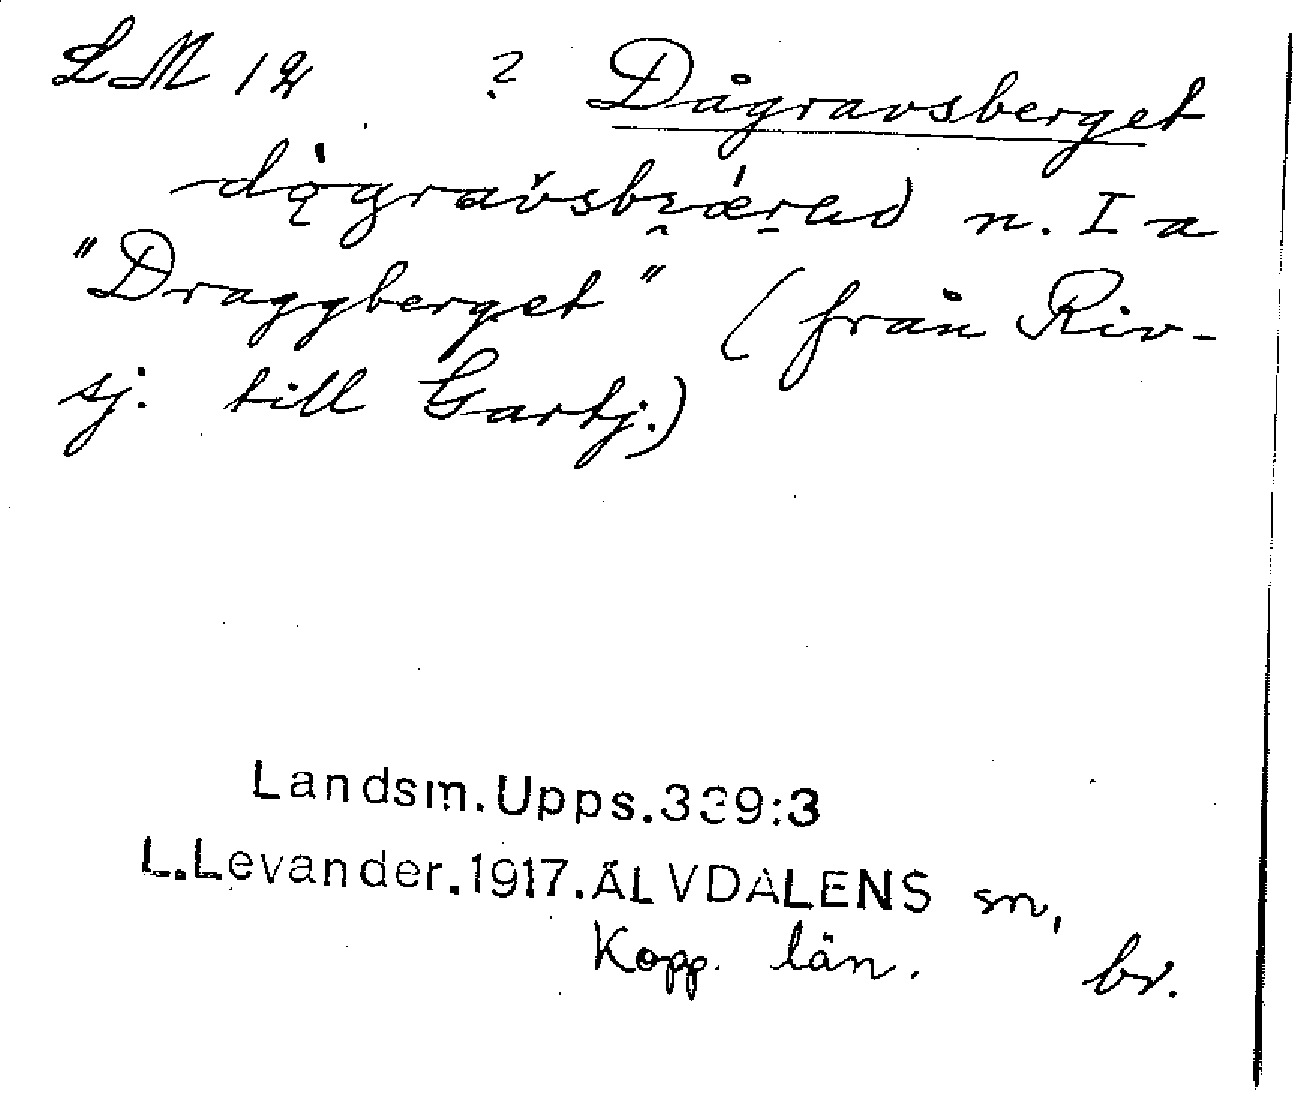 LM 12 ? Dågravsberget
n. I a
"Draggberget" (från Riv-
sj. till Gartj.)
Landsm.Upps.339:3
L.Levander.1917.ÄLVDALENS sn,
Kopp. län. br.